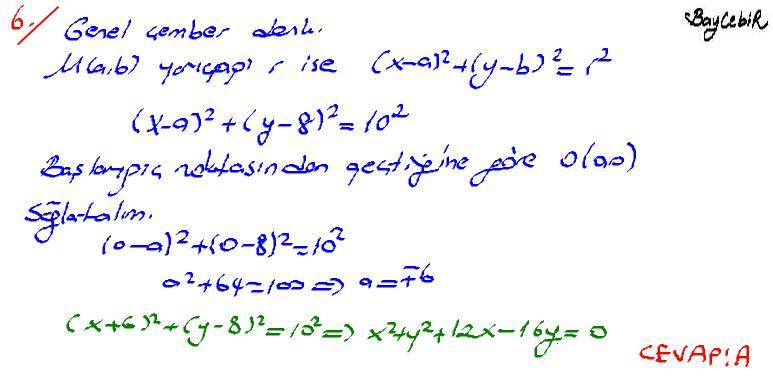 6./ Genel çember denk.
BayCebiR
M(a,b) yarıçapı r ise (x-a)²+(y-b)²=r²
(x-a)²+(y-8)²=10²
Başlangıç noktasından geçtiğine göre O(0,0)
Sağlatalım.
(0-a)²+(0-8)²=10²
a²+64=100=>a=∓6
(x+6)²+(y-8)²=10²=>x²+y²+12x-16y=0
CEVAP:A